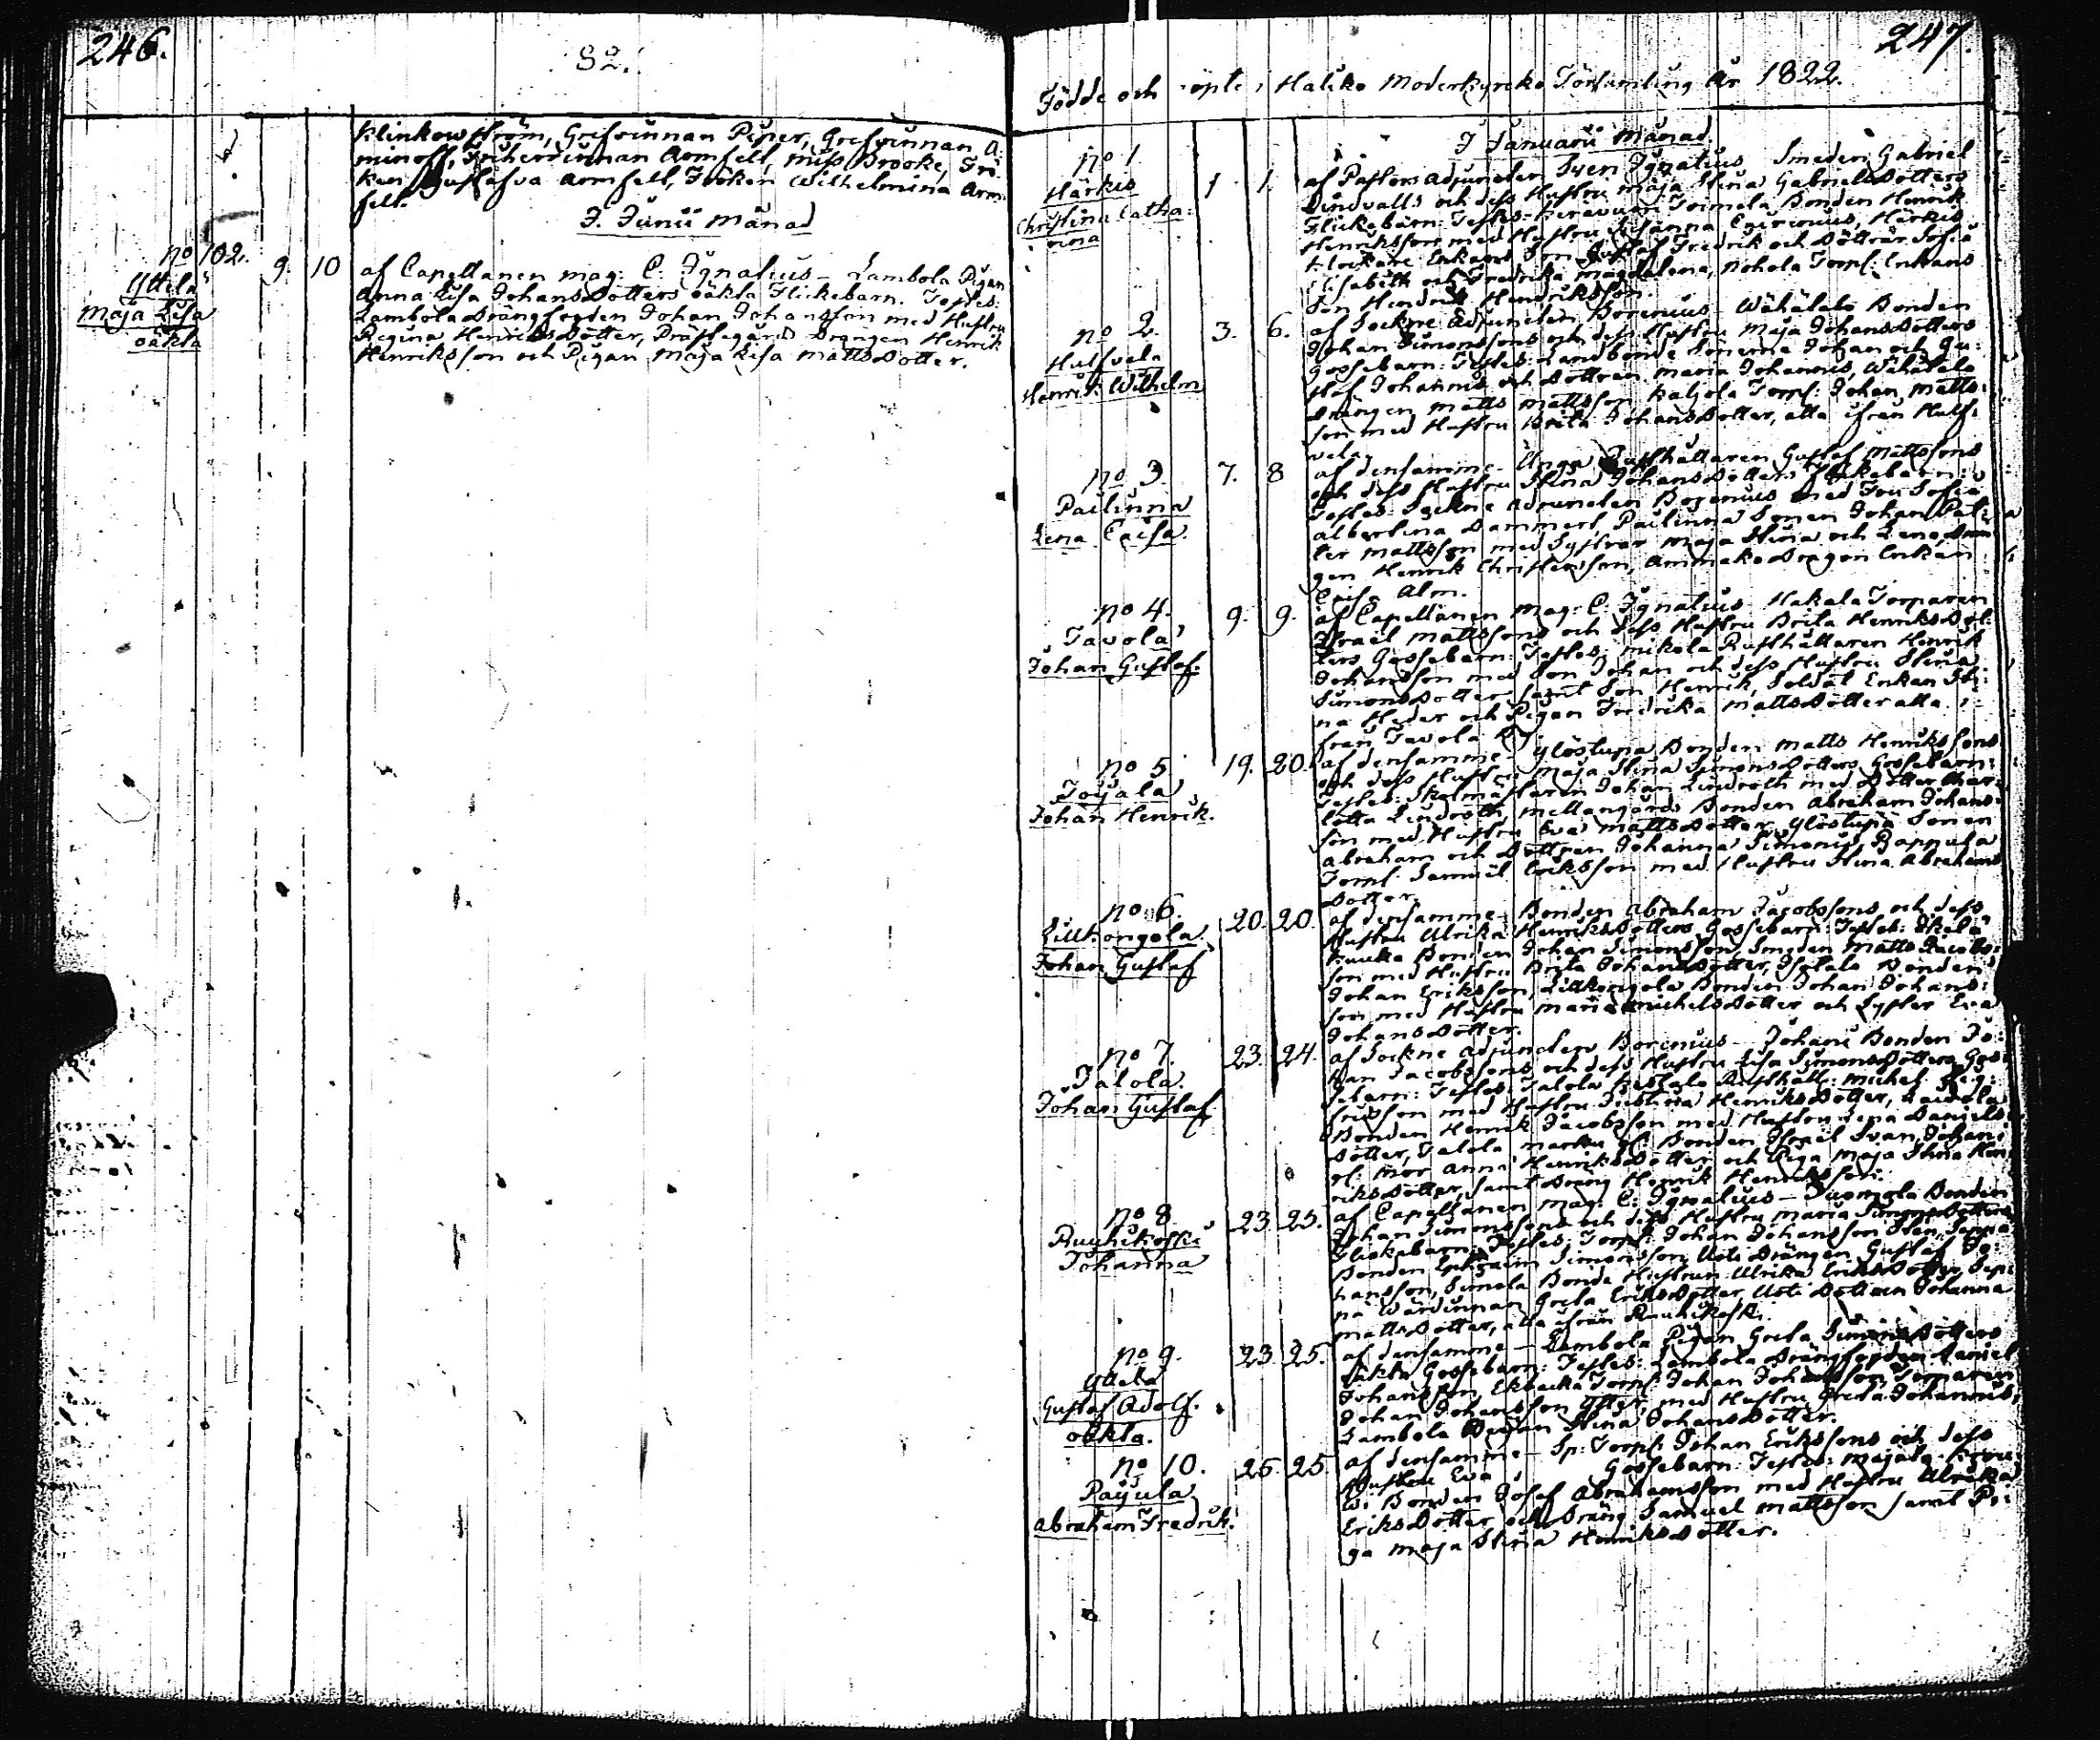 246.
82.
Klinkowström, Grefvinnan Piper, Grefvinnan A:
minoff, Friherrinnan Armfelt, Miss Brooke, Frö
ken Gustafva Armfelt, Fröken Wilhelmina Arm
felt.
J. Junii Månad
no 102.
Yttilä
Maja Lisa
oäkta
9. 10
af Capellanen Mag: C. Ignatius – Lambola Pigan
Anna Lisa Johans Dotters oäkta Flickebarn. Testes:
Lambola Drängfogden Johan Johansson med Hustru
Regina Henriks Dotter, Prästegårds Drängen Henrik
Henriksson och Pigan Maja Lisa Matts Dotter.
247.
Födde och döpte i Haliko Moderkyrko Församling År 1822.
J Januarii Månad
no 1.
Härkis
Christina Catha:
rina
1. 1.
af Pastors Adjuncten Sven Ignatius Smeden Gabriel
Lindvalls och dess Hustru Maja Stina Gabriels Dotters
Flickebarn: Testes: Bonden Henrik
Henriksson med Hustru Susanna Härkis
Enkans Son Gustaf Fredrik och Döttrar Sofia
Elisabeth och Fredrika Magdalena, Torp: Enkans
Son Hendrik Hendriksson.
no 2.
Halfvela
Henrik Wilhelm
3. 6.
af Sockne Adjuncten Borenius – Wähälalo Bonden
Johan Simonssons och dess Hustru Maja Johans Dotters
Gossebarn: Testes: Landbonde Sönerna Johan och Gu:
staf Johannis och Dottren Maria Johannis, Wähätalo
Drängen Matts Mattsson Torp: Johan Matts:
son med Hustru Brita Johans Dotter, alla ifrån Half:
vela.
no 3.
Pailinna
Lena Caisa.
7. 8
af densamme – Rusthållaren Gustaf Mattssons
och dess Hustru Stina Johans Dotters Flickebarn:
Testes: Sockne Adjuncten Borenius med Fru Sofia
Albertina Dammert, Pailinna Sonen Johan
Mattsson med Systrar Maja Stina och Lena, Drän
gen Henrik Christersson, Dragon Enkan
Caisa Alm.
no 4.
Tavola
Johan Gustaf.
9. 9.
af Capellanen Mag: C. Ignatius Hakala Torparen
Israel Mattssons och dess Hustru Brita Henriks Dot:
ters Gossebarn: Testes: Mikola Rusthållaren Henrik
Johansson med Son Johan och dess Hustru Stina
Simons Dotter samt Son Henrik, Soldat Enkan Sti:
na Heder och Pigan Fredrika Matts Dotter alla i:
från Tavola
no 5
Toijala
Johan Henrik.
19. 20.
af densamme – Ylöstupa Bonden Matts Henrikssons
och dess Hustru Maja Stina Simons Dotters Gossebarn:
Testes: Skolmästaren Johan Lindroth med Dotter Char:
lotta Lindroth, Mellangårds Bonden Abraham Johans:
son med Hustru Eva Matts Dotter, Ylöstupa Sonen
Abraham och Dottren Johanna Simonis, Pappula
Torp: Samuel Eriksson med Hustru Stina Abrahams
Dotter.
no 6.
Lillkongola
Johan Gustaf
20. 20.
af densamme – Bonden Abraham Jacobssons och dess
Hustru Ulrika Henriks Dotters Gossebarn: Testes:
Bonden Johan Simonsson, Smeden Matts Jacobs:
son med Hustru Brita Johans Dotter, Bonden
Johan Eriksson, Lillkongola Bonden Johan Johans:
son med Hustru Maria Michels Dotter och Syster Eva
Johans Dotter.
no 7.
Talola.
Johan Gustaf
23. 24.
af Sockne Adjuncten Borenius – Bonden Jo:
han Jacobssons och dess Hustru Lisa Simons Dotters Gos:
sebarn: Testes: Talola Rusthåll: Michel
med Hustru Justina Henriks Dotter,
Bonden Henrik Jacobsson med Hustru Lena Daniels
Dotter, Talola Bonden Israel
Mor Anna Henriks Dotter och Piga Maja Stina Hen:
riks Dotter, samt Dräng Henrik Henriksson.
no 8
Ruuhikoski
Johanna
23. 25.
af Capellanen Mag: C. Ignatius – Bonden
Johan Simonssons och dess Hustru Maria Simons Dotters
Flickebarn: Testes: Torp: Johan Johansson Sten, Seppä
Bonden Ephraim Simonsson, Uoti Drängen Gustaf Jo:
hansson, Simola Bonde Hustrun Ulrika Eriks Dotter, Sep:
pä Wärdinnan Greta Eriks Dotter, Uoti Dottren Johanna
Matts Dotter, alla ifrån Ruuhikoski.
no 9.
Yttilä
Gustaf Adolf.
oäkta.
23. 25.
af densamme – Lambola Pigan Greta Simons Dotters
oäkta Gossebarn: Testes: Lambola Drängfogden
Johansson, Ekbacka Torp: Johan Johansson, Torparen
Johan Johansson med Hustru Greta Johannis,
Lambola Pigan Stina Johans Dotter.
no 10.
Pajula
Abraham Fredrik.
25 25
af densamme – Sp: Torp: Johan Erikssons och dess
Hustru Eva Gossebarn: Testes: Majala
Bonden Josef Abrahamsson med Hustru Ulrika
Eriks Dotter och Dräng Samuel Mattsson samt Pi:
ga Maja Stina Henriks Dotter.